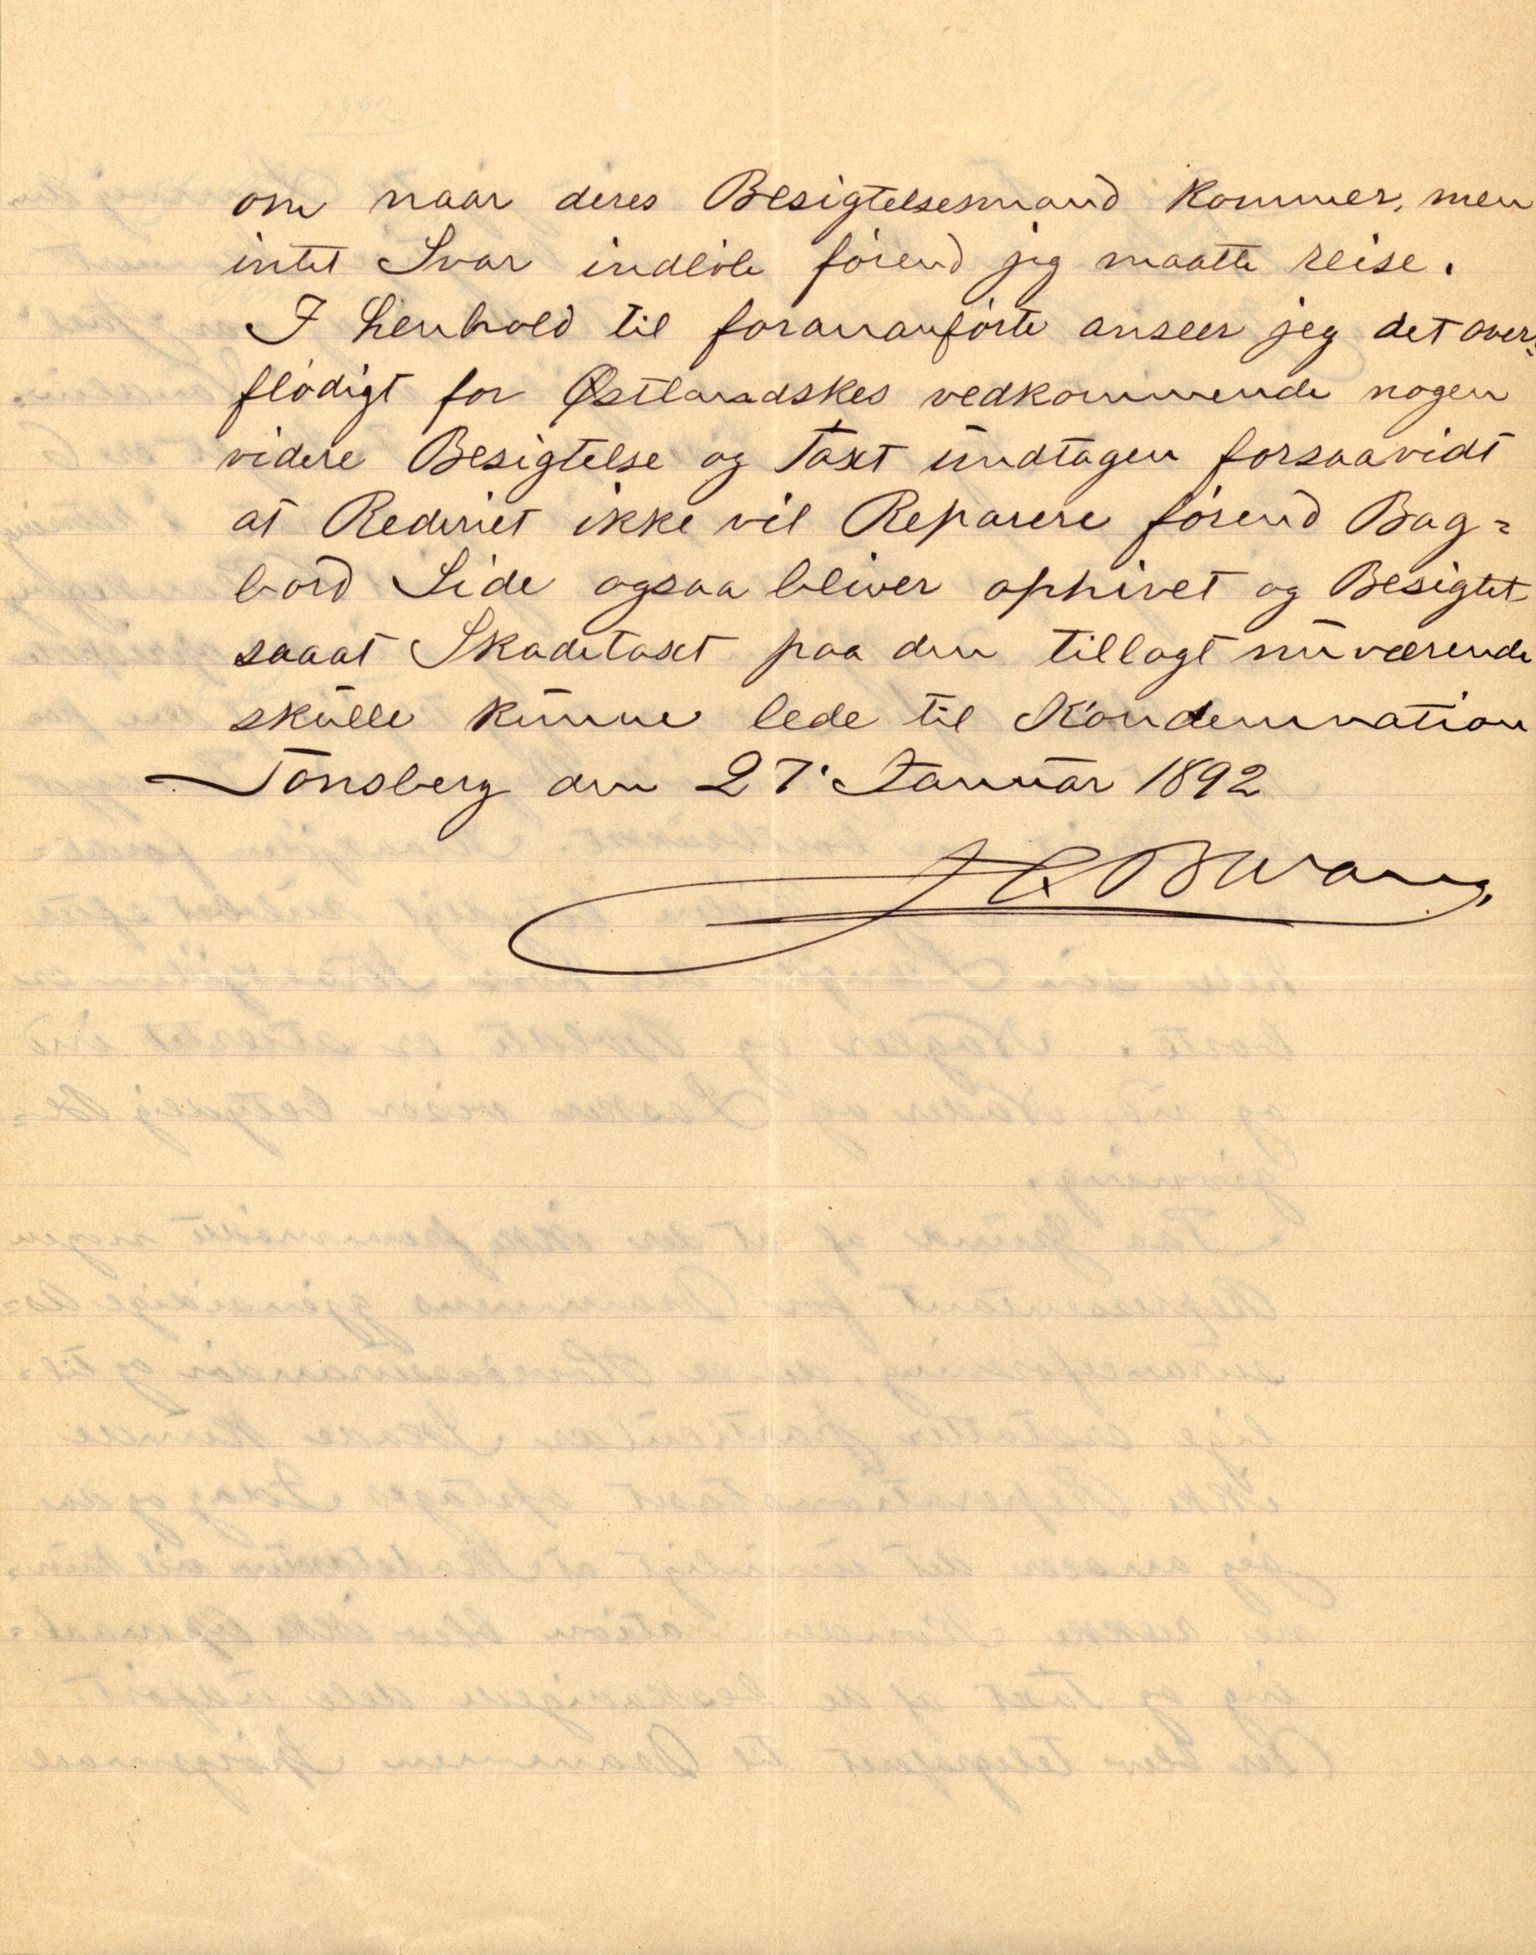 om naar deres Besigtelsesmand kommer, men
intet Svar indløb førend jeg maatte reise.
I henhold til forananførte anseer jeg det over=
flødigt for Østlandskes vedkommende nogen
videre Besigtelse og Taxt undtagen forsaavidt
at Rederiet ikke vil Reparere førend Bag=
bord Side ogsaa bliver ophivet og Besigtet
saaat Skadetaxt paa den tillagt nuværende
skulle kunne lede til Kondemnation
Tønsberg den 27' Januar 1892